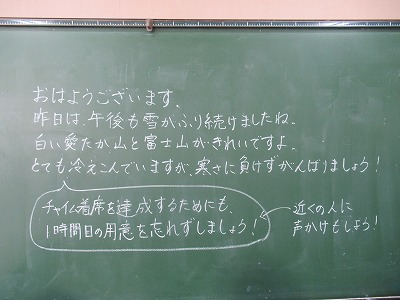 おはようございます。
昨日は、午後も雪がふり続けましたね。
白い愛たか山と富士山がきれいですよ。
とても冷えこんでいますが、寒さに負けずがんばりましょう!
チャイム着席を達成するためにも、
1時間目の用意を忘れずしましょう!
近くの人に
声かけもしよう!